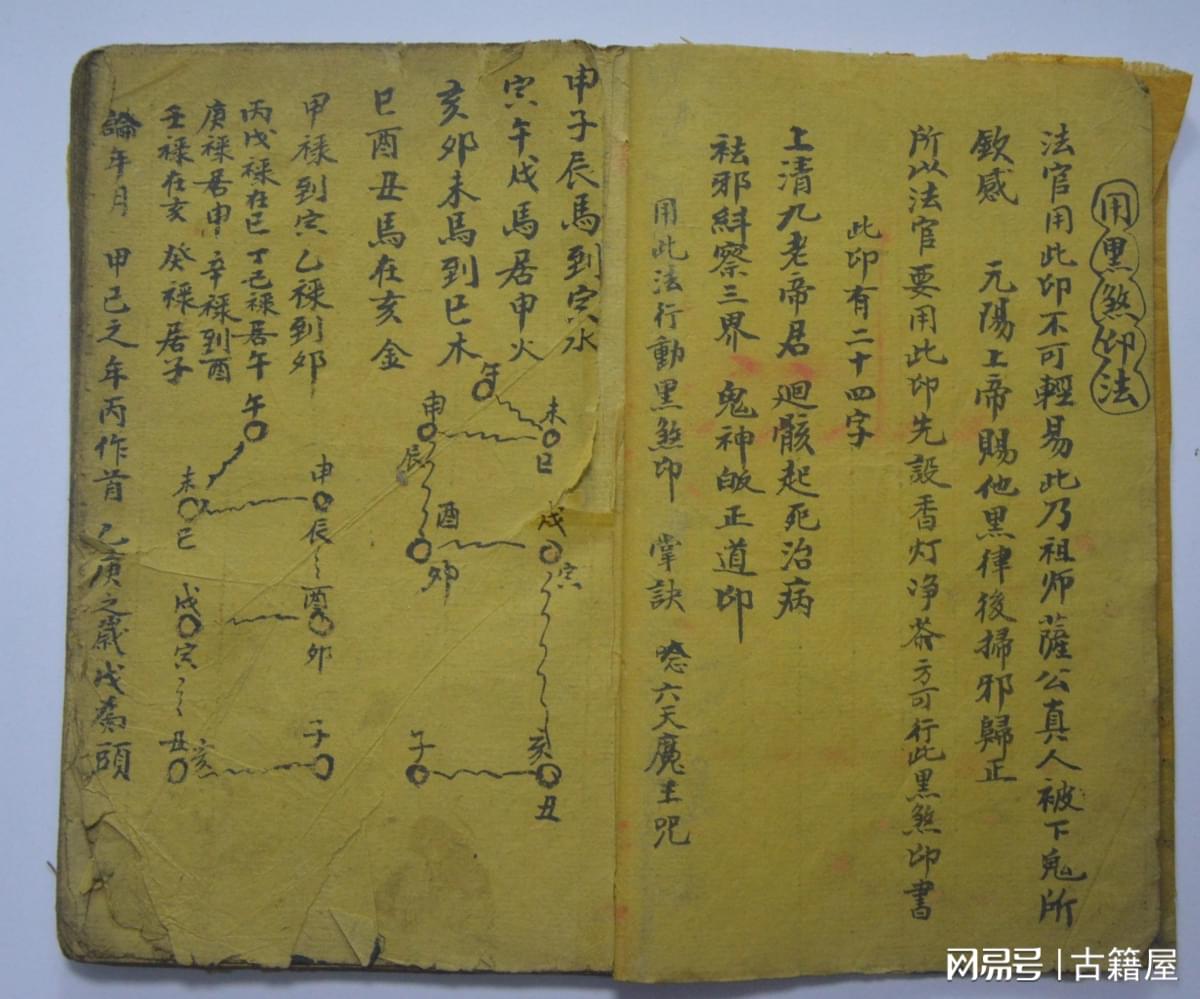 用黑煞印法
法官用此印不可輕易此乃祖师薩公真人被下鬼所
欽感 元陽上帝賜他黑律後掃邪歸正
所以法官要用此印先設香灯净茶方可行此黑煞印書
此印有二十四字
上清九老帝君 迴骸起死治病
祛邪糾察三界 鬼神皈正道印
用此法行動黑煞印 掌訣 唸六天魔王咒
申子辰馬到寅水
寅午戌馬居申火
亥卯未馬到巳木
巳酉丑馬在亥金
甲禄到寅乙禄到卯
丙戊禄在巳丁己禄居午
庚禄居申辛禄到酉
壬禄在亥癸禄居子
論年月 甲己之年丙作首 乙庚之歲戊為頭
午
未
巳
申
辰
酉
卯
戌
寅
子
亥
丑
午
未
巳
申
辰
酉
卯
戌
寅
丑
亥
子
网易号 | 古籍屋